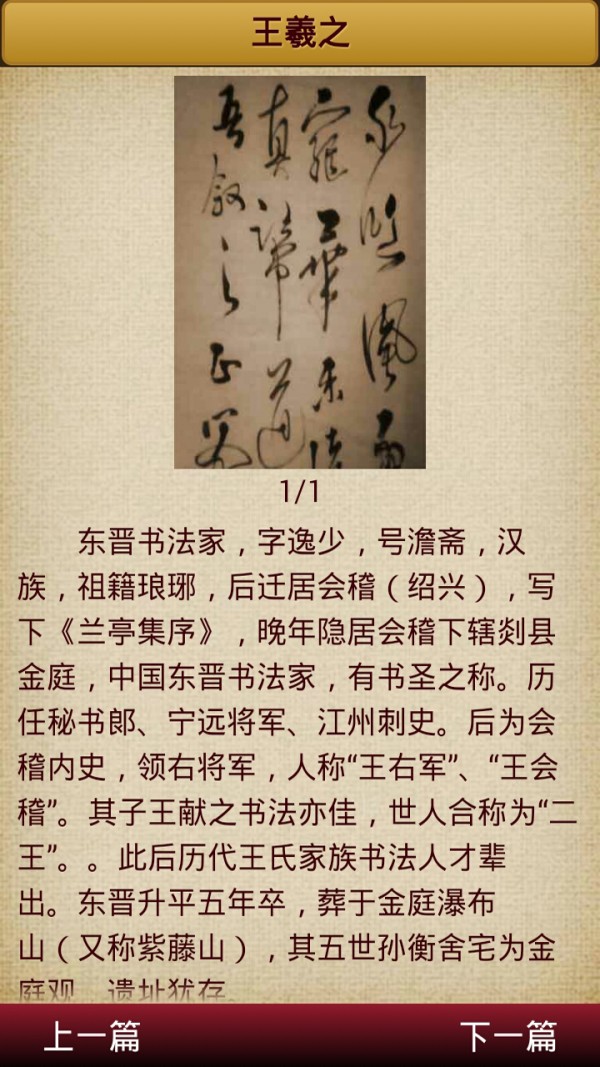 王羲之
1/1
东晋书法家，字逸少，号澹斋，汉
族，祖籍琅琊，后迁居会稽（绍兴），写
下《兰亭集序》，晚年隐居会稽下辖剡县
金庭，中国东晋书法家，有书圣之称。历
任秘书郞、宁远将军、江州刺史。后为会
稽内史，领右将军，人称“王右军”、“王会
稽”。其子王献之书法亦佳，世人合称为“二
王”。。此后历代王氏家族书法人才辈
出。东晋升平五年卒，葬于金庭瀑布
山（又称紫藤山），其五世孙衡舍宅为金
庭观，遗址犹存。
上一篇
下一篇